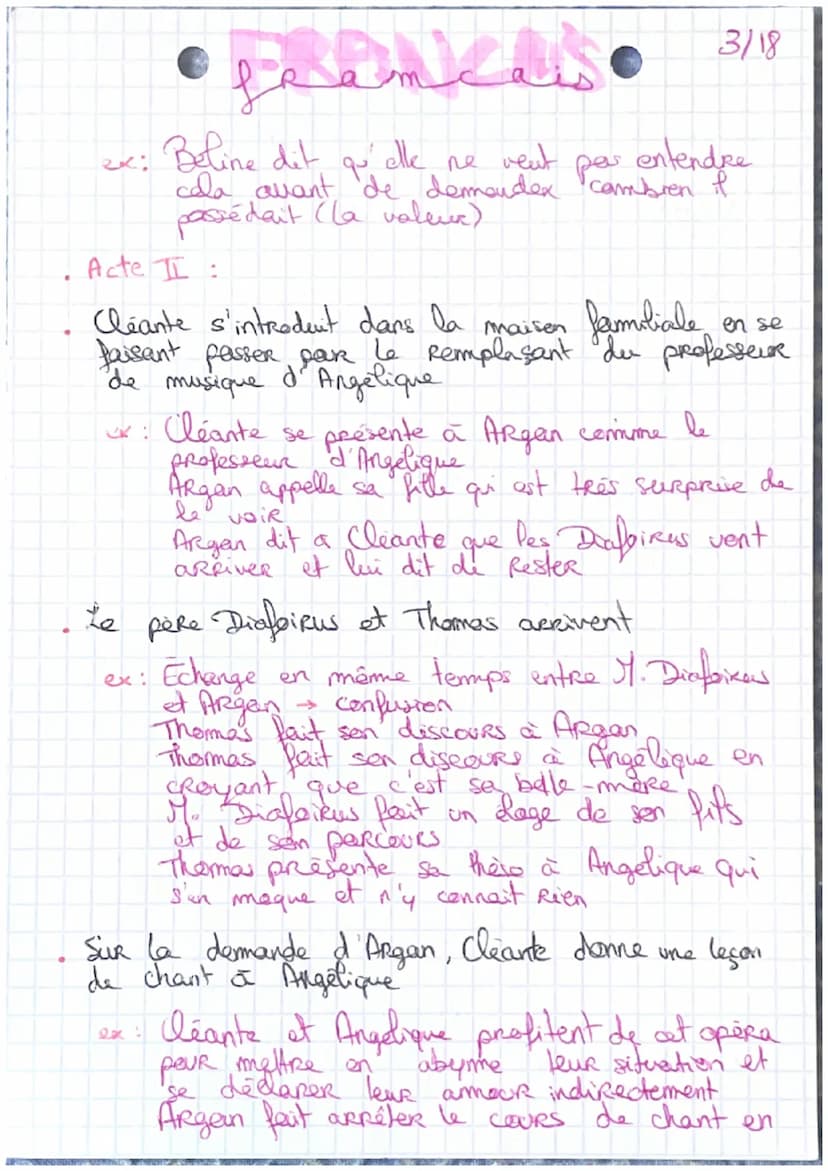 FRANCAIS
francais
3/18
ex: Béline dit qu'elle ne veut pas entendre
cela avant de demander combien il
possédait (la valeur)
. Acte II :
. Cléante s'introduit dans la maison familiale en se
faisant passer par le remplaçant du professeur
de musique d'Angélique
ex: Cléante se présente à Argan comme le
professeur d'Angélique
Argan appelle sa fille qui est très surprise de
le voir
Argan dit a Cléante que les Diafoirus vont
arriver et lui dit de rester
. Le père Diafoirus et Thomas arrivent
ex: Echange en même temps entre M. Diafoirus
et Argan → confusion
Thomas fait son discours à Argan
Thomas fait son discours à Angélique en
croyant que c'est sa belle-mère
M. Diafoirus fait un éloge de son fils
et de son parcours
Thomas présente sa thèse à Angélique qui
s'en moque et n'y connait rien
. Sur la demande d'Argan, Cléante donne une leçon
de chant à Angélique
ex: Cléante et Angélique profitent de cet opéra
pour mettre en abyme leur situation et
se déclarer leur amour indirectement
Argan fait arrêter le cours de chant en